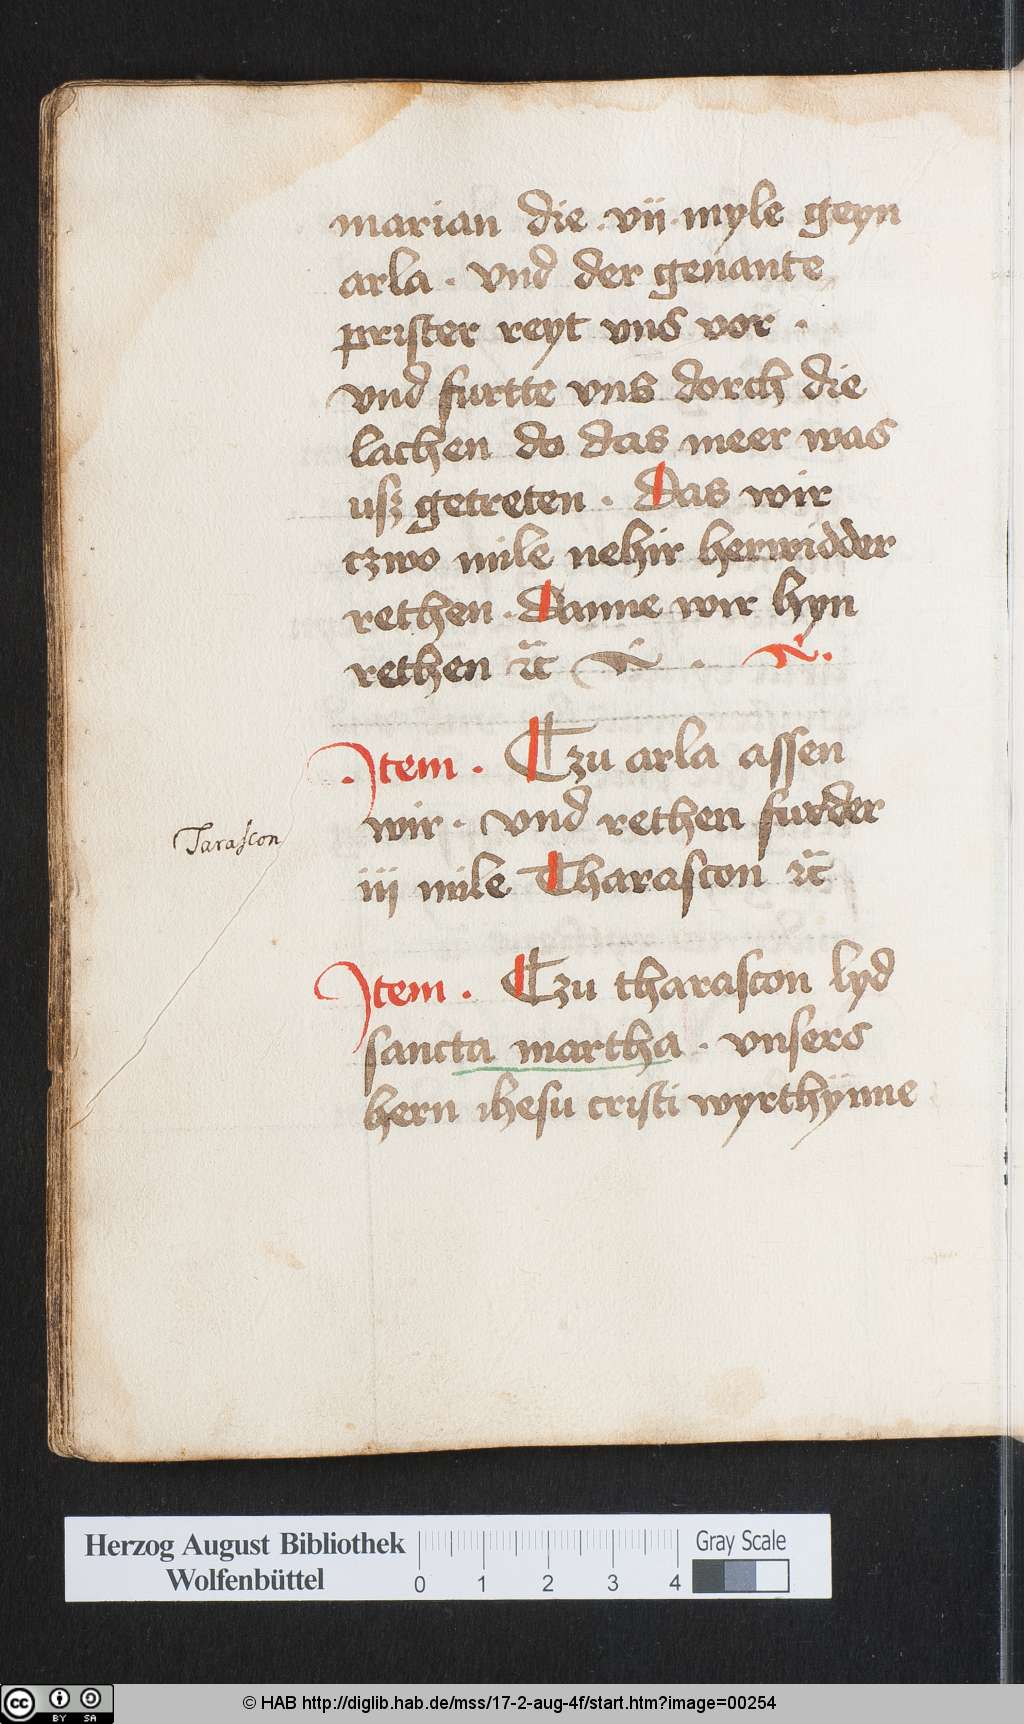 marian die · vij · myle geyn
arla · vnd der genante
prister reyt vns vor ·
vnd furtte vns dorch die
lachen do das meer was
usz getreten · Das wir
tzwo mile nehir herwidder
rethen · Danne wir hyn
rethen ꝛc̃
· Item · Tzu arla assen
wir · vnd rethen furder
Tarascon
iij mile Tharascon ꝛc̃
Item · Tzu tharascon lyd
sancta martha · vnsers
hern ihesu cristi wyrthÿnne
Herzog August Bibliothek
Wolfenbüttel
0 1 2 3 4
Gray Scale
cc BY SA
© HAB http://diglib.hab.de/mss/17-2-aug-4f/start.htm?image=00254